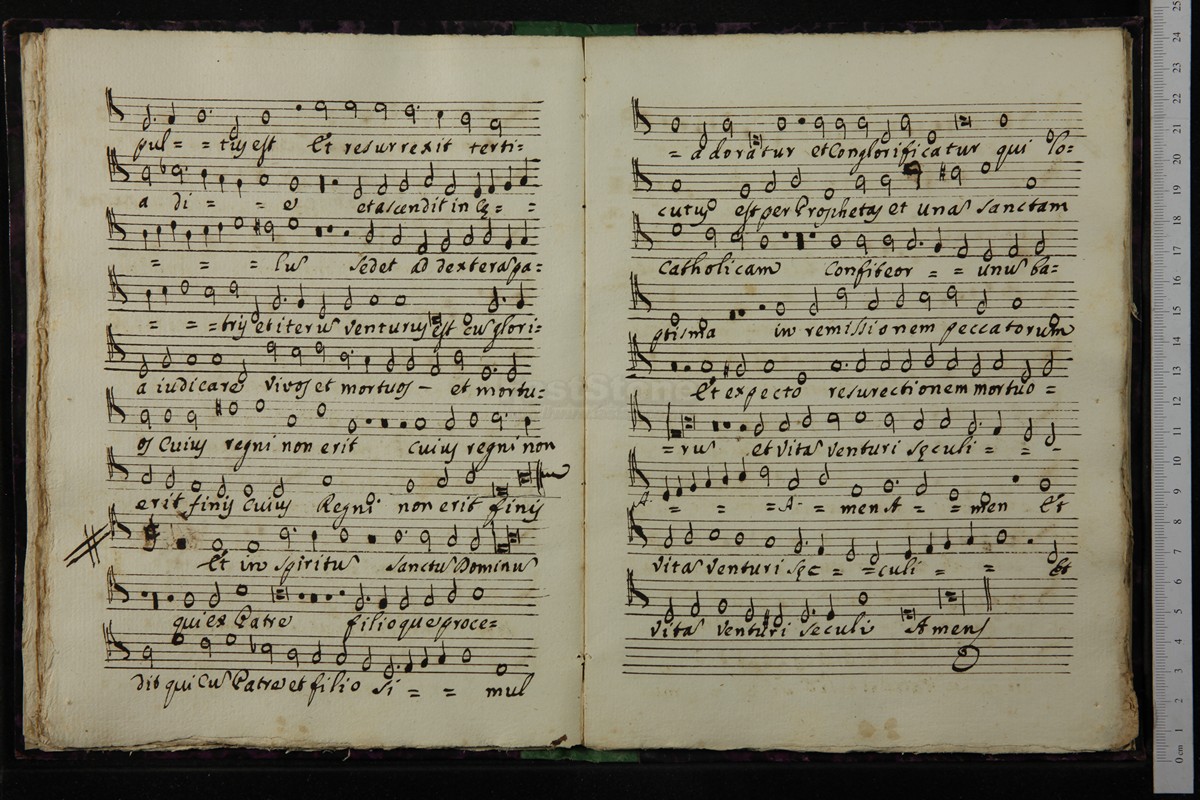 pul= =tus est Et resurrexit terti=
a di= = e et ascendit in Cę= =
= = = lus sedet ad dexterã pa=
= = =tris et iterũ venturus est cũ glori=
a iudicare vivos et mortuos — et mortu=
os Cuius regni non erit cuius regni non
erit finis Cuius Regni non erit finis
Et in spiritũ sanctũ Dominũ
qui ex Patre filioque proce=
dit qui cũ Patre et filio si= = mul
=adoratur et Conglorificatur qui lo=
cutus est per Prophetas et Unã sanctam
Catholicam Confiteor = = unũ ba=
ptisma in remissionem peccatorum
Et expecto resurectionem mortuo=
=rũ et Vitã Venturi sęculi= = -
A- = = =A- = men A= =men Et
Vitã Venturi sęc= =culi= = Et
Vitã Venturi seculi Amen